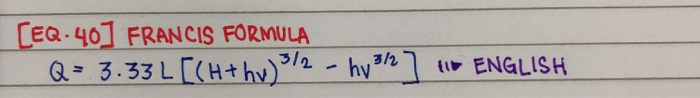 [EQ.40] FRANCIS FORMULA
Q = 3.33 L [(H+hv)^3/2 - hv^3/2] ⇒ ENGLISH